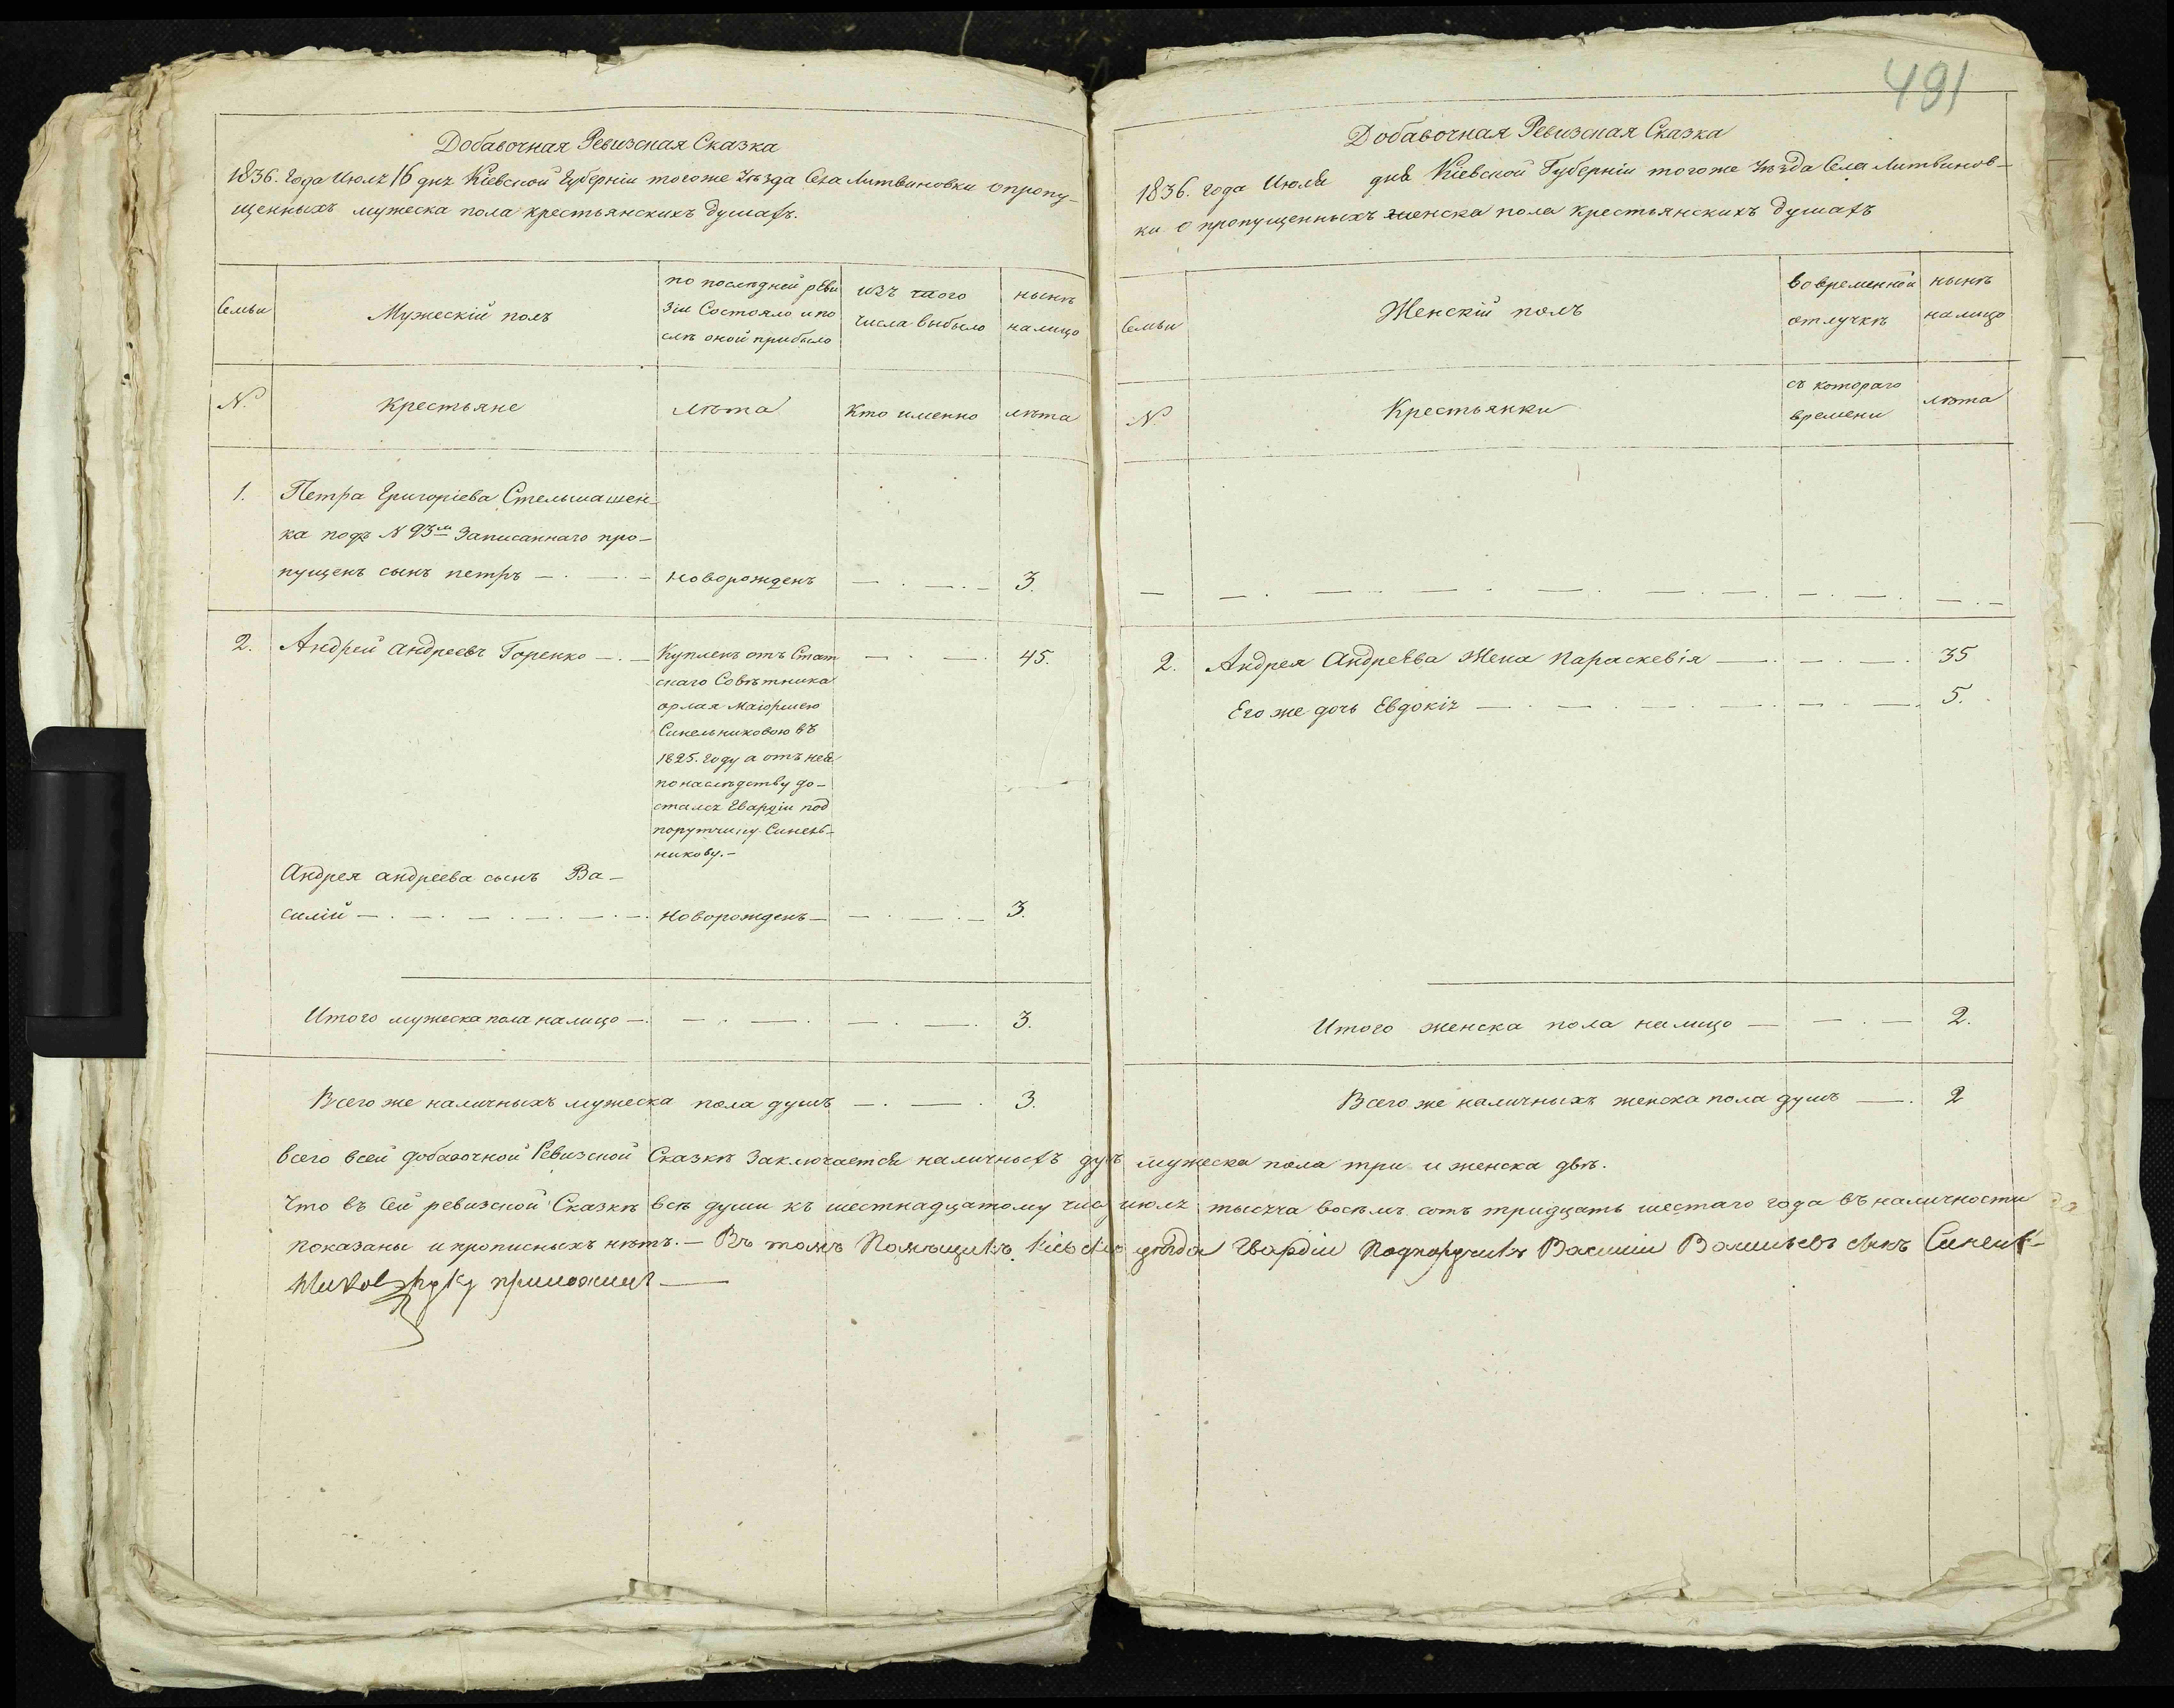 Добавочная Ревизская Сказка
1836. года Июля 16 дня Кіевской Губерніи того же Уѣзда Села Литвиновки о пропу-
щенныхъ мужеска пола крестьянскихъ душахъ.
Семьи
Мужескій полъ
по послѣдней реви
зіи Состояло и по
слѣ оной прибыло
изъ того
числа выбыло
нынѣ
налицо
N.
Крестьяне
лѣта
Кто именно
лѣта
1.
Петра Григоріева Стельмашен-
ка подъ N 93м Записаннаго про-
пущенъ сынъ петръ
новорожденъ
3.
2.
Андрей Андреевъ Горенко
Купленъ отъ Стат
скаго Совѣтника
орлая Маіоршею
Синельниковою въ
1825. году а отъ нея
по наслѣдству до-
стался Гвардіи под
порутчику Синель-
никову.
45.
Андрея андреева сынъ Ва-
силій
новорожденъ
3.
Итого мужеска пола налицо
3.
Всего же наличныхъ мужеска пола душъ
3.
491
Добавочная Ревизская Сказка
1836. года Июля дня Кіевской Губерніи того же Уѣзда Села Литвинов-
ки о пропущенныхъ женска пола крестьянскихъ душахъ
Семьи
Женскій полъ
во временной
отлучкѣ
нынѣ
налицо
N
Крестьянки
съ котораго
времени
лѣта
2.
Андрея Андреева Жена Параскевія
35
Его же дочь Евдокія
5.
Итого женска пола налицо
2.
Всего же наличныхъ женска пола душъ
2
Всего в сей добавочной Ревизской Сказкѣ Заключается наличныхъ душъ мужеска пола три и женска двѣ.
Что въ Сей ревизской Сказкѣ всѣ души къ шестнадцатому июля тысяча восемь сотъ тридцать шестаго года въ наличности
показаны и прописныхъ нѣтъ. — Въ томъ Помѣщикъ уѣзда Гвардіи Подпоручикъ Василій Васильевъ сынъ Синель-
никовъ руку приложилъ